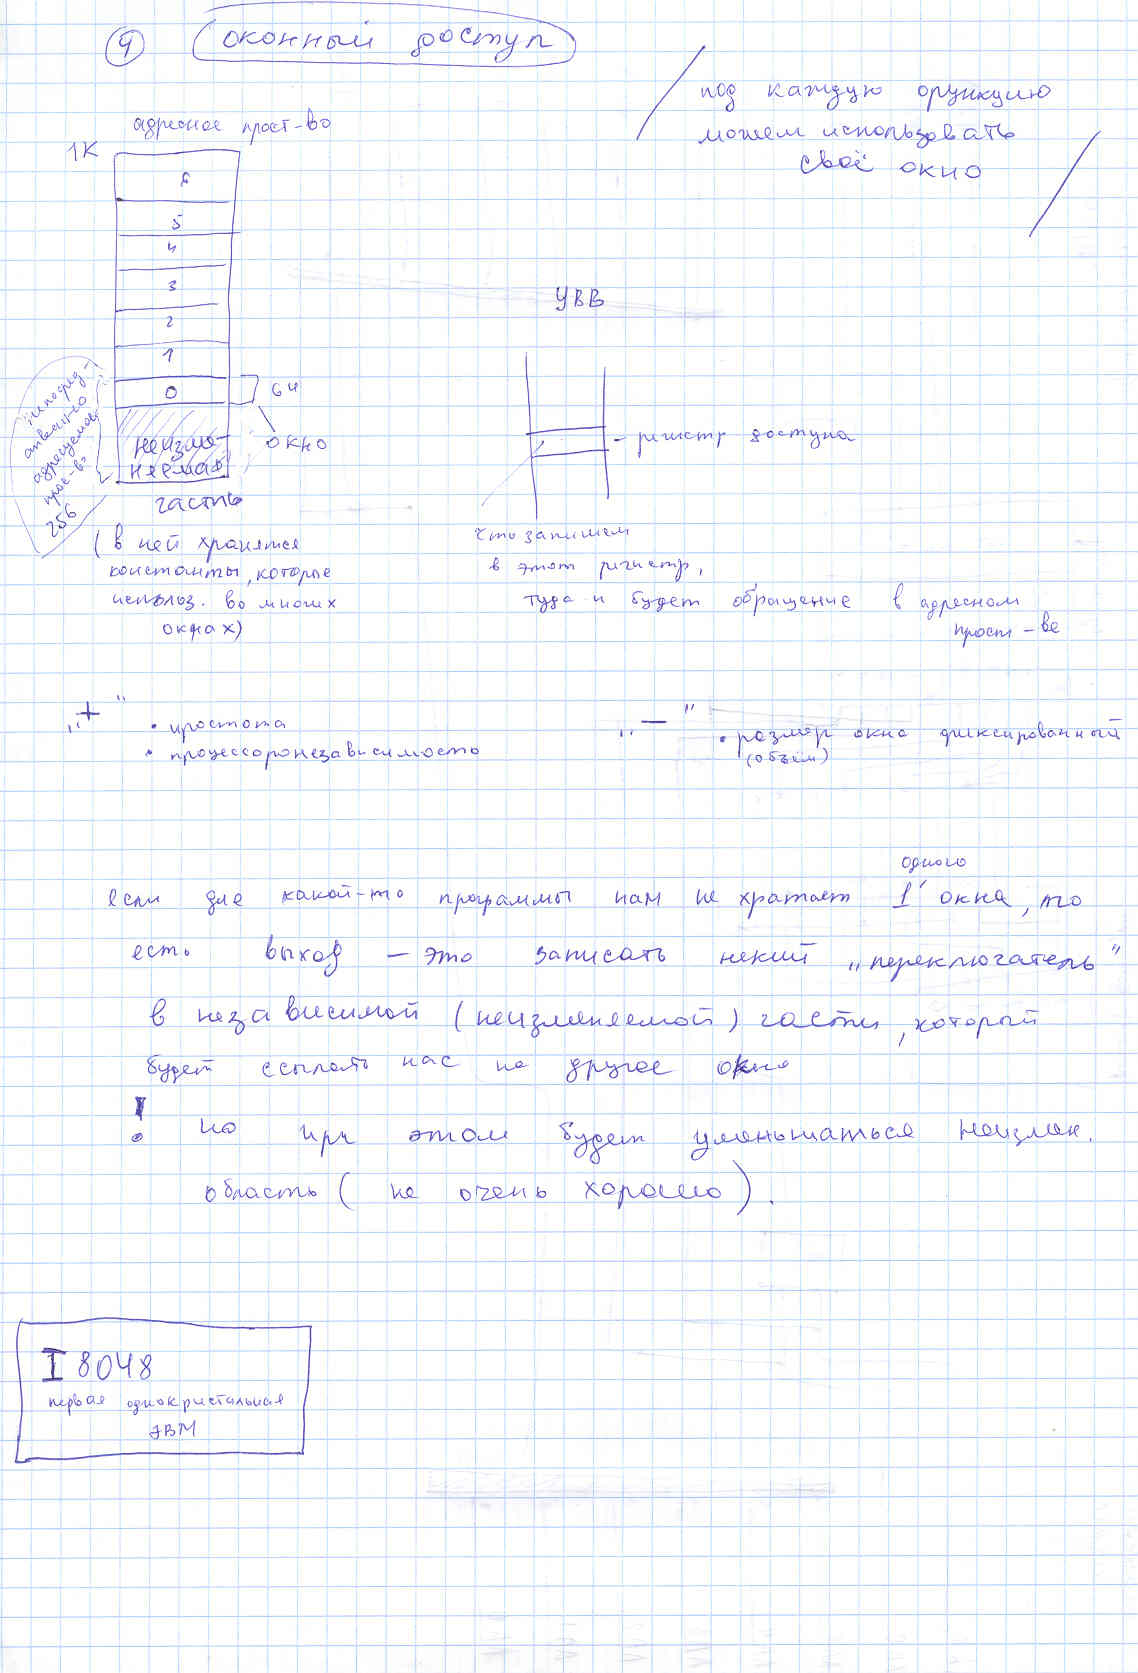 4 оконный доступ
под каждую функцию
можем использовать
своё окно
адресное прост-во
1К
6
5
4
3
2
1
0
64
окно
неизме-
няемая
часть
непосред-
ственно
адресуемое
прос-во
256
(в ней хранятся
константы, которые
использ. во многих
окнах)
УВВ
- регистр доступа
что запишем
в этот регистр,
туда и будет обращение в адресном
прост-ве
„+"
• простота
• процессоронезависимость
„—"
• размер окна фиксированный
(объём)
одного
если для какой-то программы нам не хватает 1 окна, то
есть выход — это записать некий „переключатель"
в независимой (неизменяемой) части, который
будет ссылать нас на другое окно
! но при этом будет уменьшаться неизмен.
область (не очень хорошо).
I 8048
первая однокристальная
ЭВМ